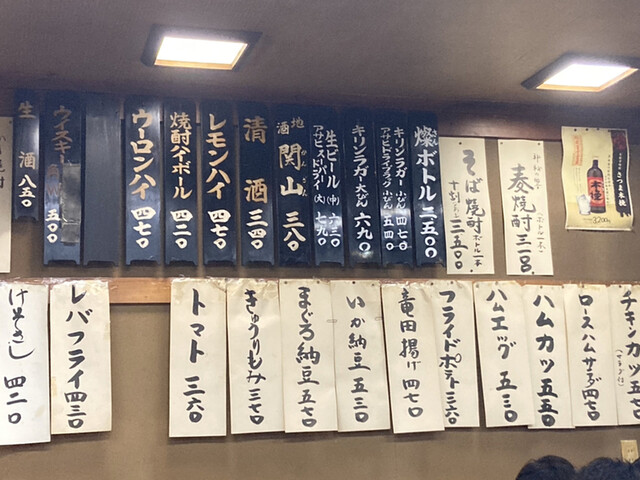 そば焼酎 ボトル一本
十割 三五〇〇
麦焼酎 三一〇〇
3,200
燦ボトル 二五〇〇
キリンラガー 小びん 四七〇
アサヒドライブラック 小びん 五四〇
キリンラガー 大びん 六九〇
生ビール (中) 六三〇
(大) 七九〇
地酒 関山 三八〇
清酒 三四〇
レモンハイ 四七〇
焼酎ハイボール 四二〇
ウーロンハイ 四七〇
ウイスキー 五〇〇
生酒 八五〇
チキンカツ
ロースハムサラダ 四七〇
ハムカツ 五五〇
ハムエッグ 五三〇
フライドポテト 三六〇
竜田揚げ 四七〇
いか納豆 五三〇
まぐろ納豆 五七〇
きゅうりもみ 三七〇
トマト 三六〇
レバフライ 四三〇
四二〇